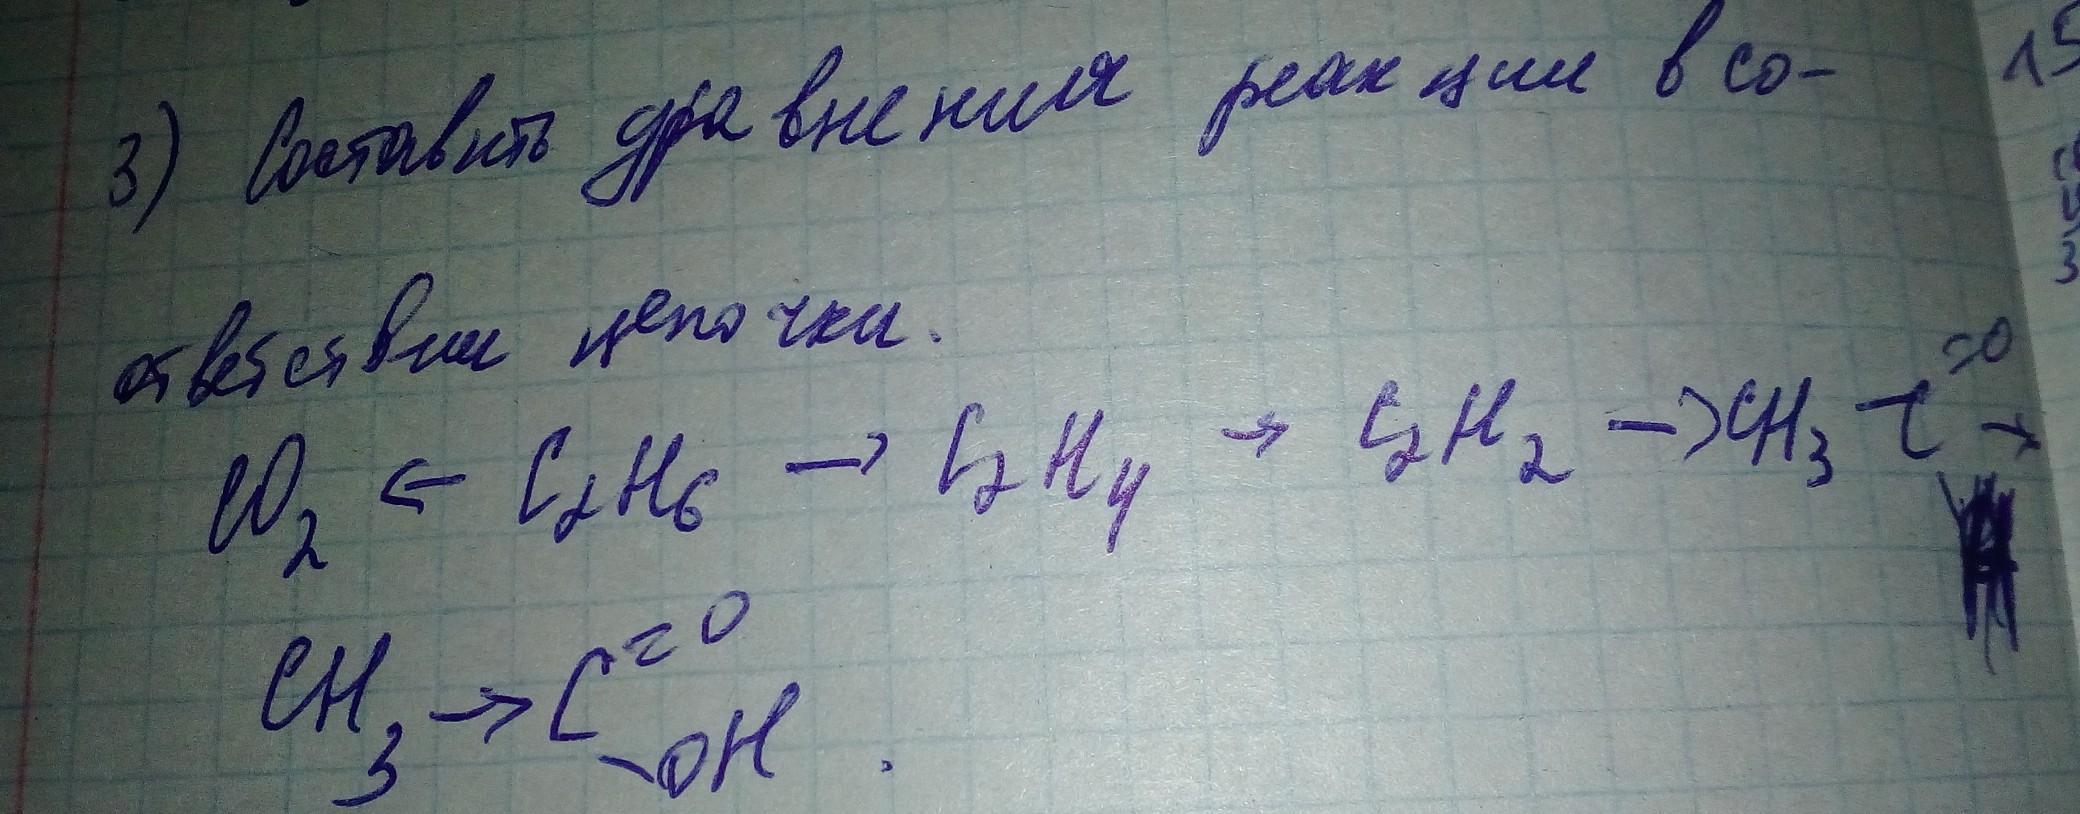 3) Составить уравнения реакции в со-
ответствии цепочки.
CO₂ ← C₂H₆ → C₂H₄ → C₂H₂ → CH₃ – C =O →
CH₃ → C =O -OH .
15
3